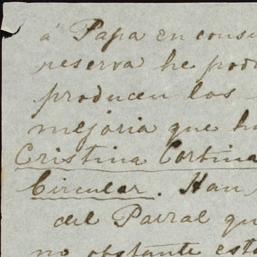 á Papa en consi
reserva he pod
producen los
mejoria que h
Cristina Cortina
Circular. Han
del Parral qu
no obstante est